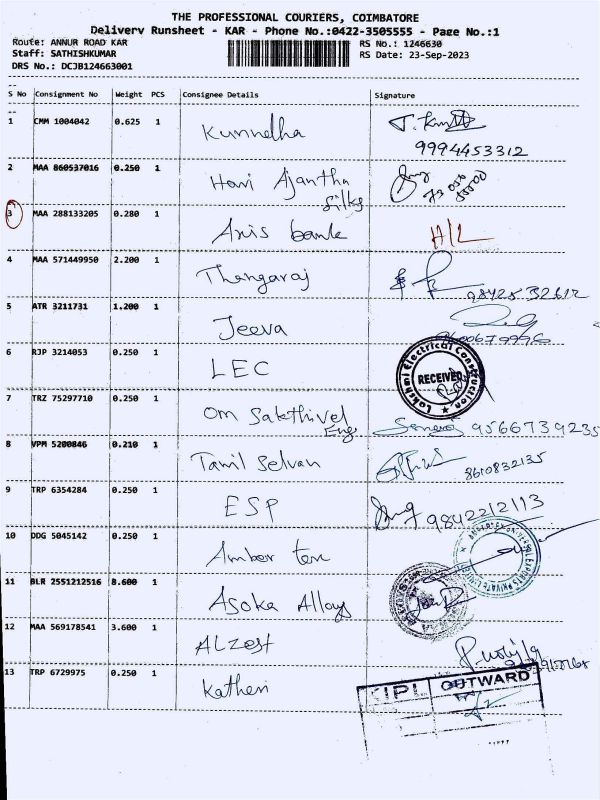 THE PROFESSIONAL COURIERS, COIMBATORE
Delivery Runsheet - KAR - Phone No.:0422-3505555 - Page No.:1
Route: ANNUR ROAD KAR
RS No.: 1246630
Staff: SATHISHKUMAR
RS Date: 23-Sep-2023
DRS No.: DCJB124663001
S No Consignment No Weight PCS Consignee Details Signature
1 CMM 1004042 0.625 1 Kunnelha
9994453312
2 MAA 860537016 0.250 1 Hari Ajantha
Silks
3 MAA 288133205 0.280 1 Axis bank H/L
4 MAA 571449950 2.200 1 Thangaraj
5 ATR 3211731 1.200 1 Jeeva
6 RJP 3214053 0.250 1 LEC
Lakshmi Electrical Construction
RECEIVED
7 TRZ 75297710 0.250 1 Om Sakthivel
Eng 9566739235
8 VPM 5200846 0.210 1 Tamil Selvan
8610832135
9 TRP 6354284 0.250 1 ESP 9842212113
10 DDG 5045142 0.250 1 Amber tex
11 BLR 2551212516 8.600 1 Asoka Alloys
12 MAA 569178541 3.600 1 ALZest
13 TRP 6729975 0.250 1 Kathen
KIPL OUTWARD